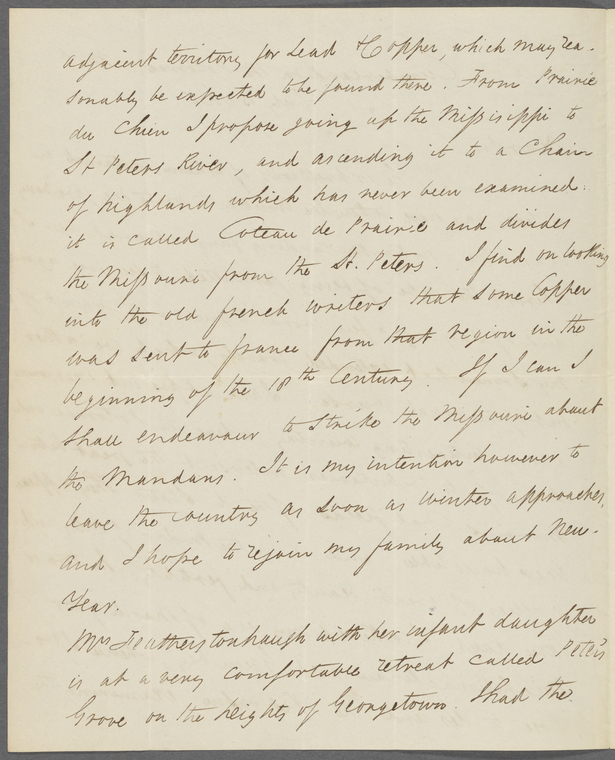 adjacent territory for Lead & Copper, which may rea-
sonably be expected to be found there. From Prairie
du Chien I propose going up the Missisippi to
St Peters River, and ascending it to a Chain
of highlands which has never been examined.
it is called Coteau de Prairie and divides
the Missouri from the St. Peters. I find on looking
into the old french writers that some Copper
was sent to france from that region in the
beginning of the 18th Century. If I can I
shall endeavour to strike the Missouri about
the Mandans. It is my intention however to
leave the country as soon as winter approaches,
and I hope to rejoin my family about New-
Year.
Mrs Featherstonhaugh with her infant daughter
is at a very comfortable retreat called Peter's
Grove on the heights of Georgetown. I had the